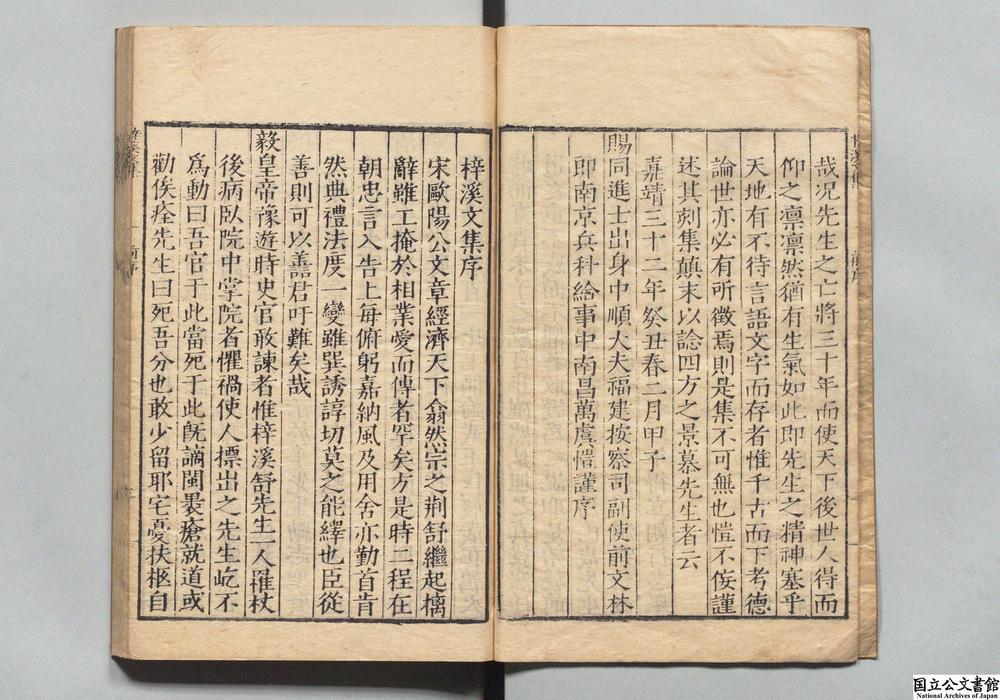 哉况先生之亡將三十年而使天下後世人得而
仰之凛凛然猶有生氣如此即先生之精神塞乎
天地有不待言語文字而存者惟千古而下考德
論世亦必有所徵焉則是集不可無也愷不佞謹
述其刻集顛末以諗四方之景慕先生者云
嘉靖三十二年癸丑春二月甲子
賜同進士出身中順大夫福建按察司副使前文林
郎南京兵科給事中南昌萬虞愷謹序
梓溪文集序
宋歐陽公文章經濟天下翕然宗之荆舒繼起摛
辭雖工掩於相業愛而傳者罕矣方是時二程在
朝忠言入告上每俯躬嘉納風及用舍亦勤首肯
然典禮法度一變雖巽誘諄切莫之能繹也臣從
善則可以善君吁難矣哉
毅皇帝豫遊時史官敢諫者惟梓溪舒先生一人罹杖
後病臥院中掌院者懼禍使人標出之先生屹不
爲動曰吾官于此當死于此旣謫閩裹瘡就道或
勸俟痊先生曰死吾分也敢少留耶宅憂扶柩自
国立公文書館
National Archives of Japan